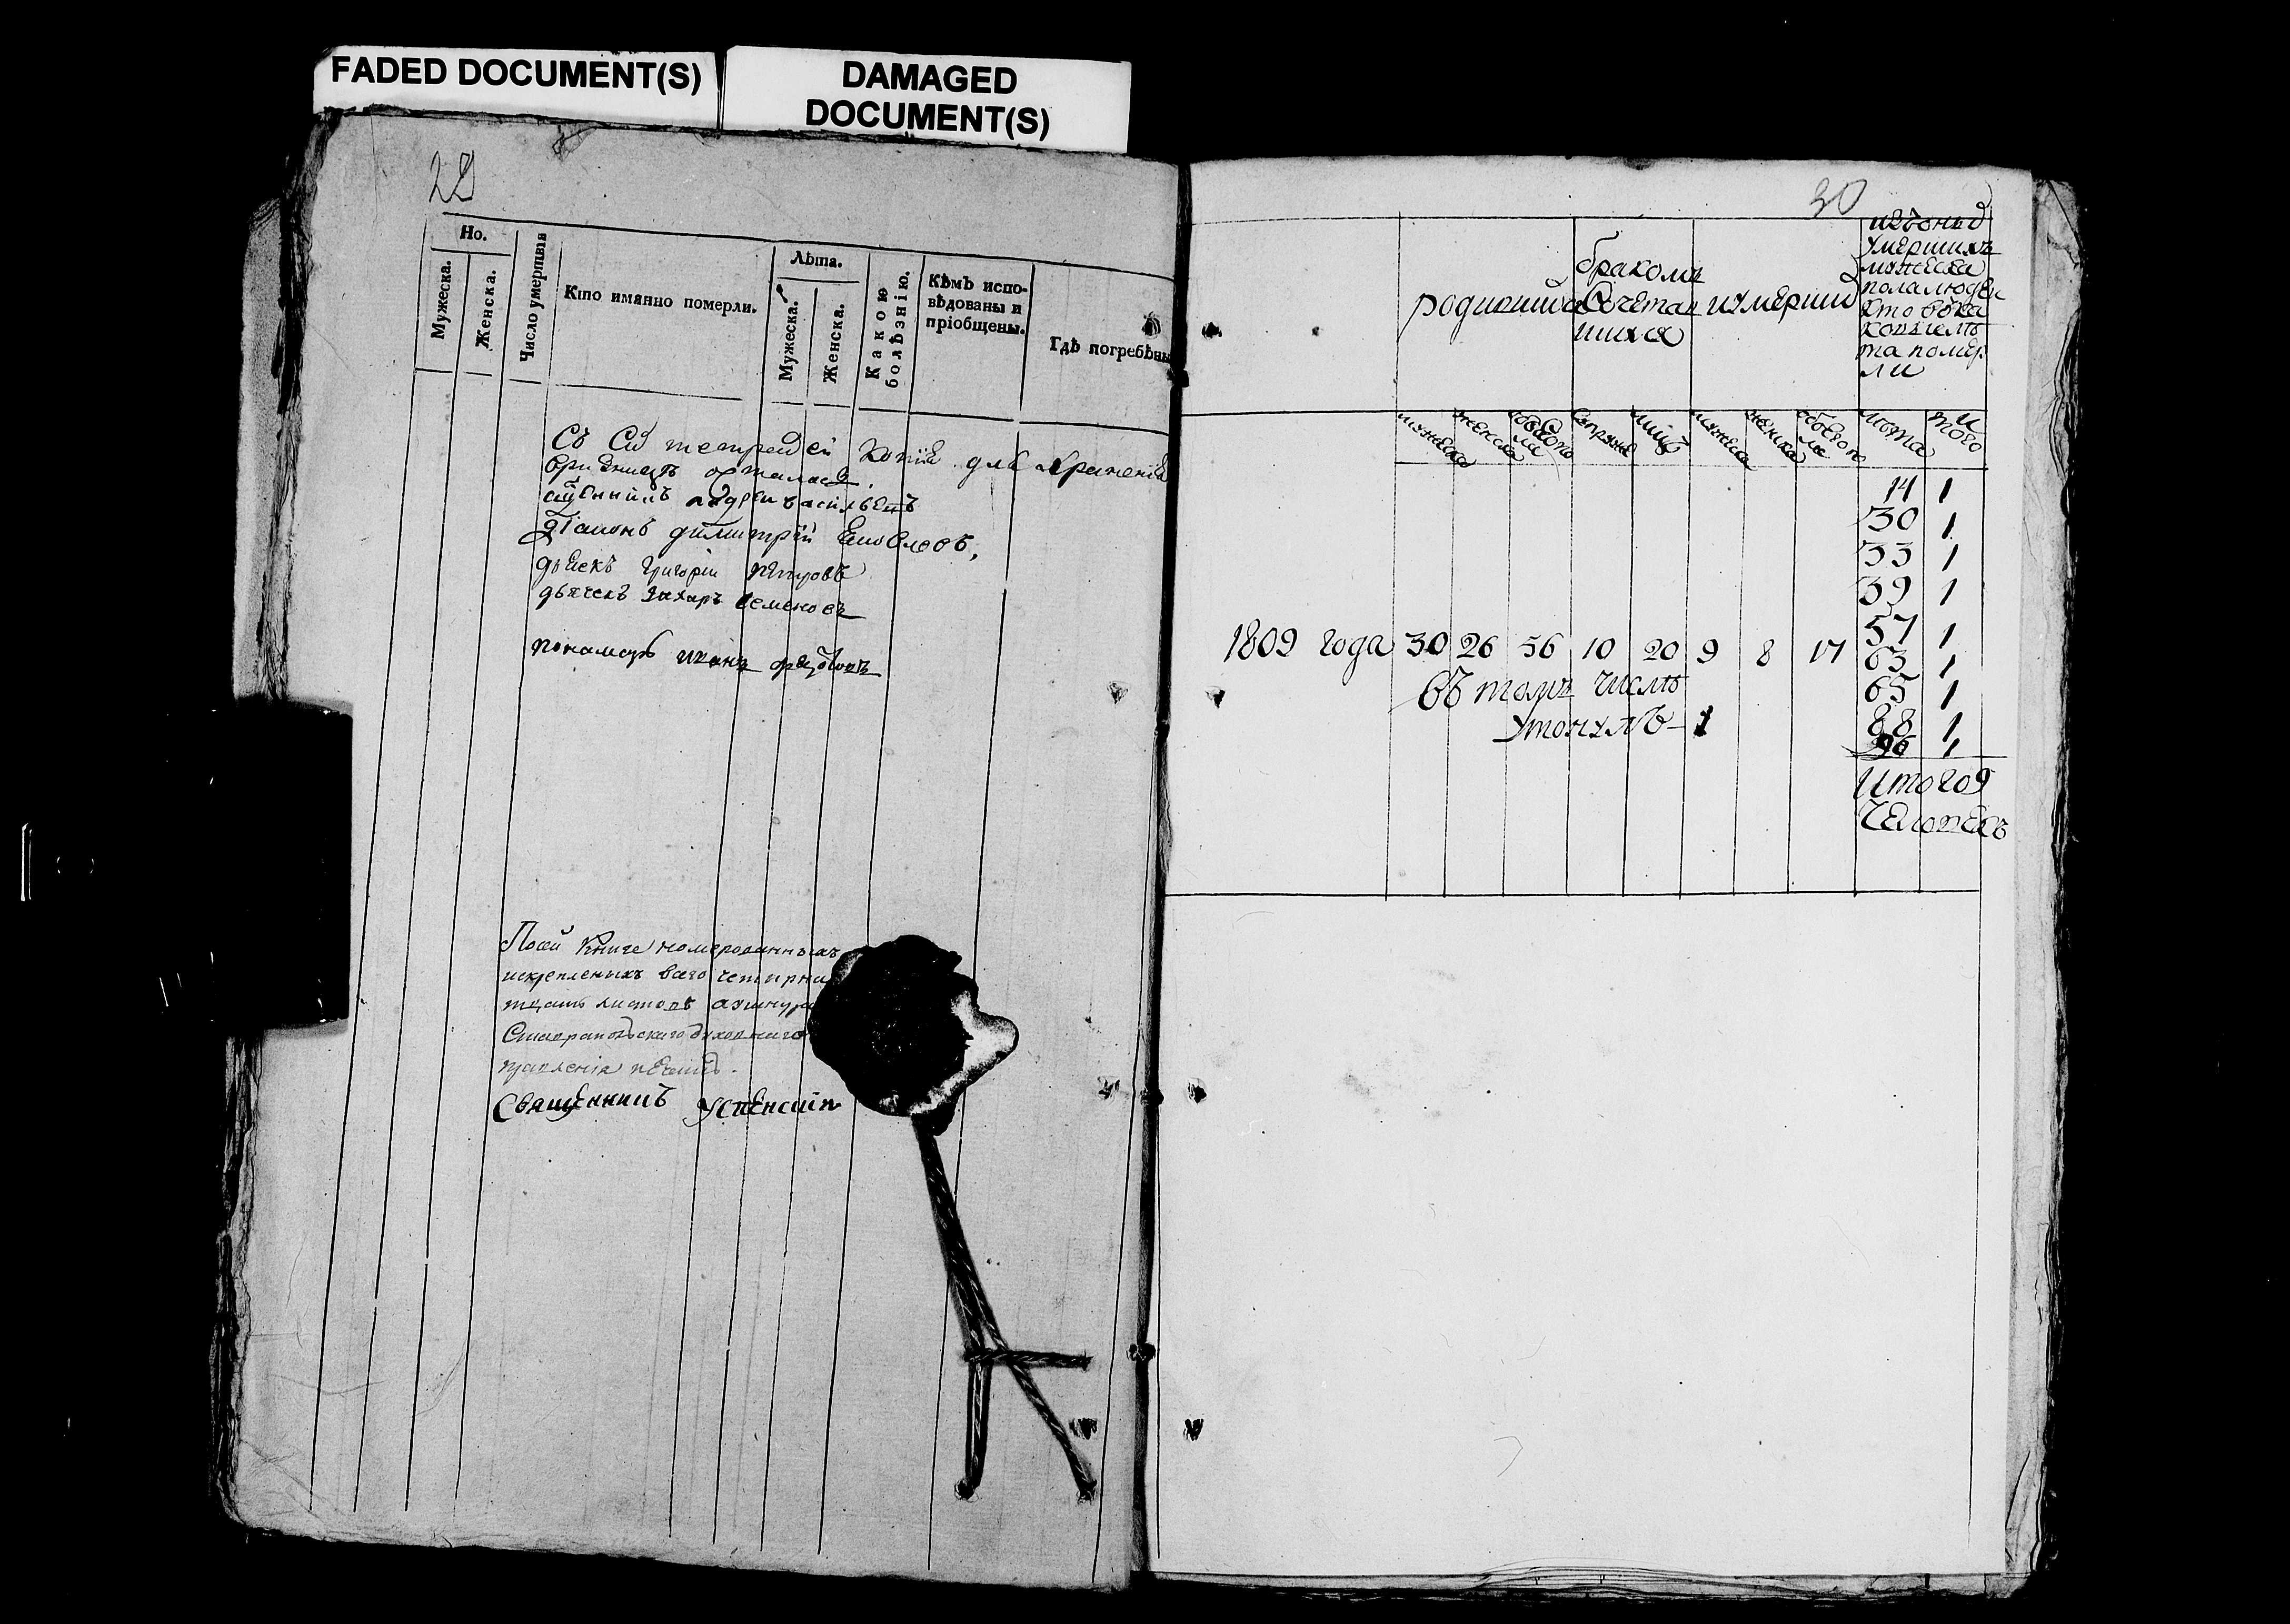 FADED DOCUMENT(S)
DAMAGED
DOCUMENT(S)
29
Но.
Мужеска.
Женска.
Число умертвія
Кто имянно померли.
Лѣта.
Мужеска.
Женска.
Какою
болѣзнію.
Кѣмъ испо-
вѣдованы и
пріобщены.
Гдѣ погребены
Съ Сей тетрадей копія для храненія
священникъ андреи васильевъ
діаконъ димитрій
дьячекъ григории петровъ
дьячекъ захаръ семеновъ
понамарь иванъ
Посей книге номерованныхъ
искрепленыхъ всего четырна
тцать листовъ ашнур
Ставропольского духовнаго
правления печать.
Священникъ Успенскій
30
родившихся
бракомъ
Сочетав
шихся
и умерших
изоныхъ
умершихъ
мужеска
пола людеи
кто в
коихъ лѣ
та помер
ли
мужеска
женска
обоего
лица
мужеска
женска
обоего по
лѣта
и
того
14 1
30 1
33 1
39 1
57 1
63 1
65 1
88 1
96 1
1809 года 30 26 56 10 20 9 8 17
въ томъ числѣ
утонулъ - 1
Итого 9
человекъ